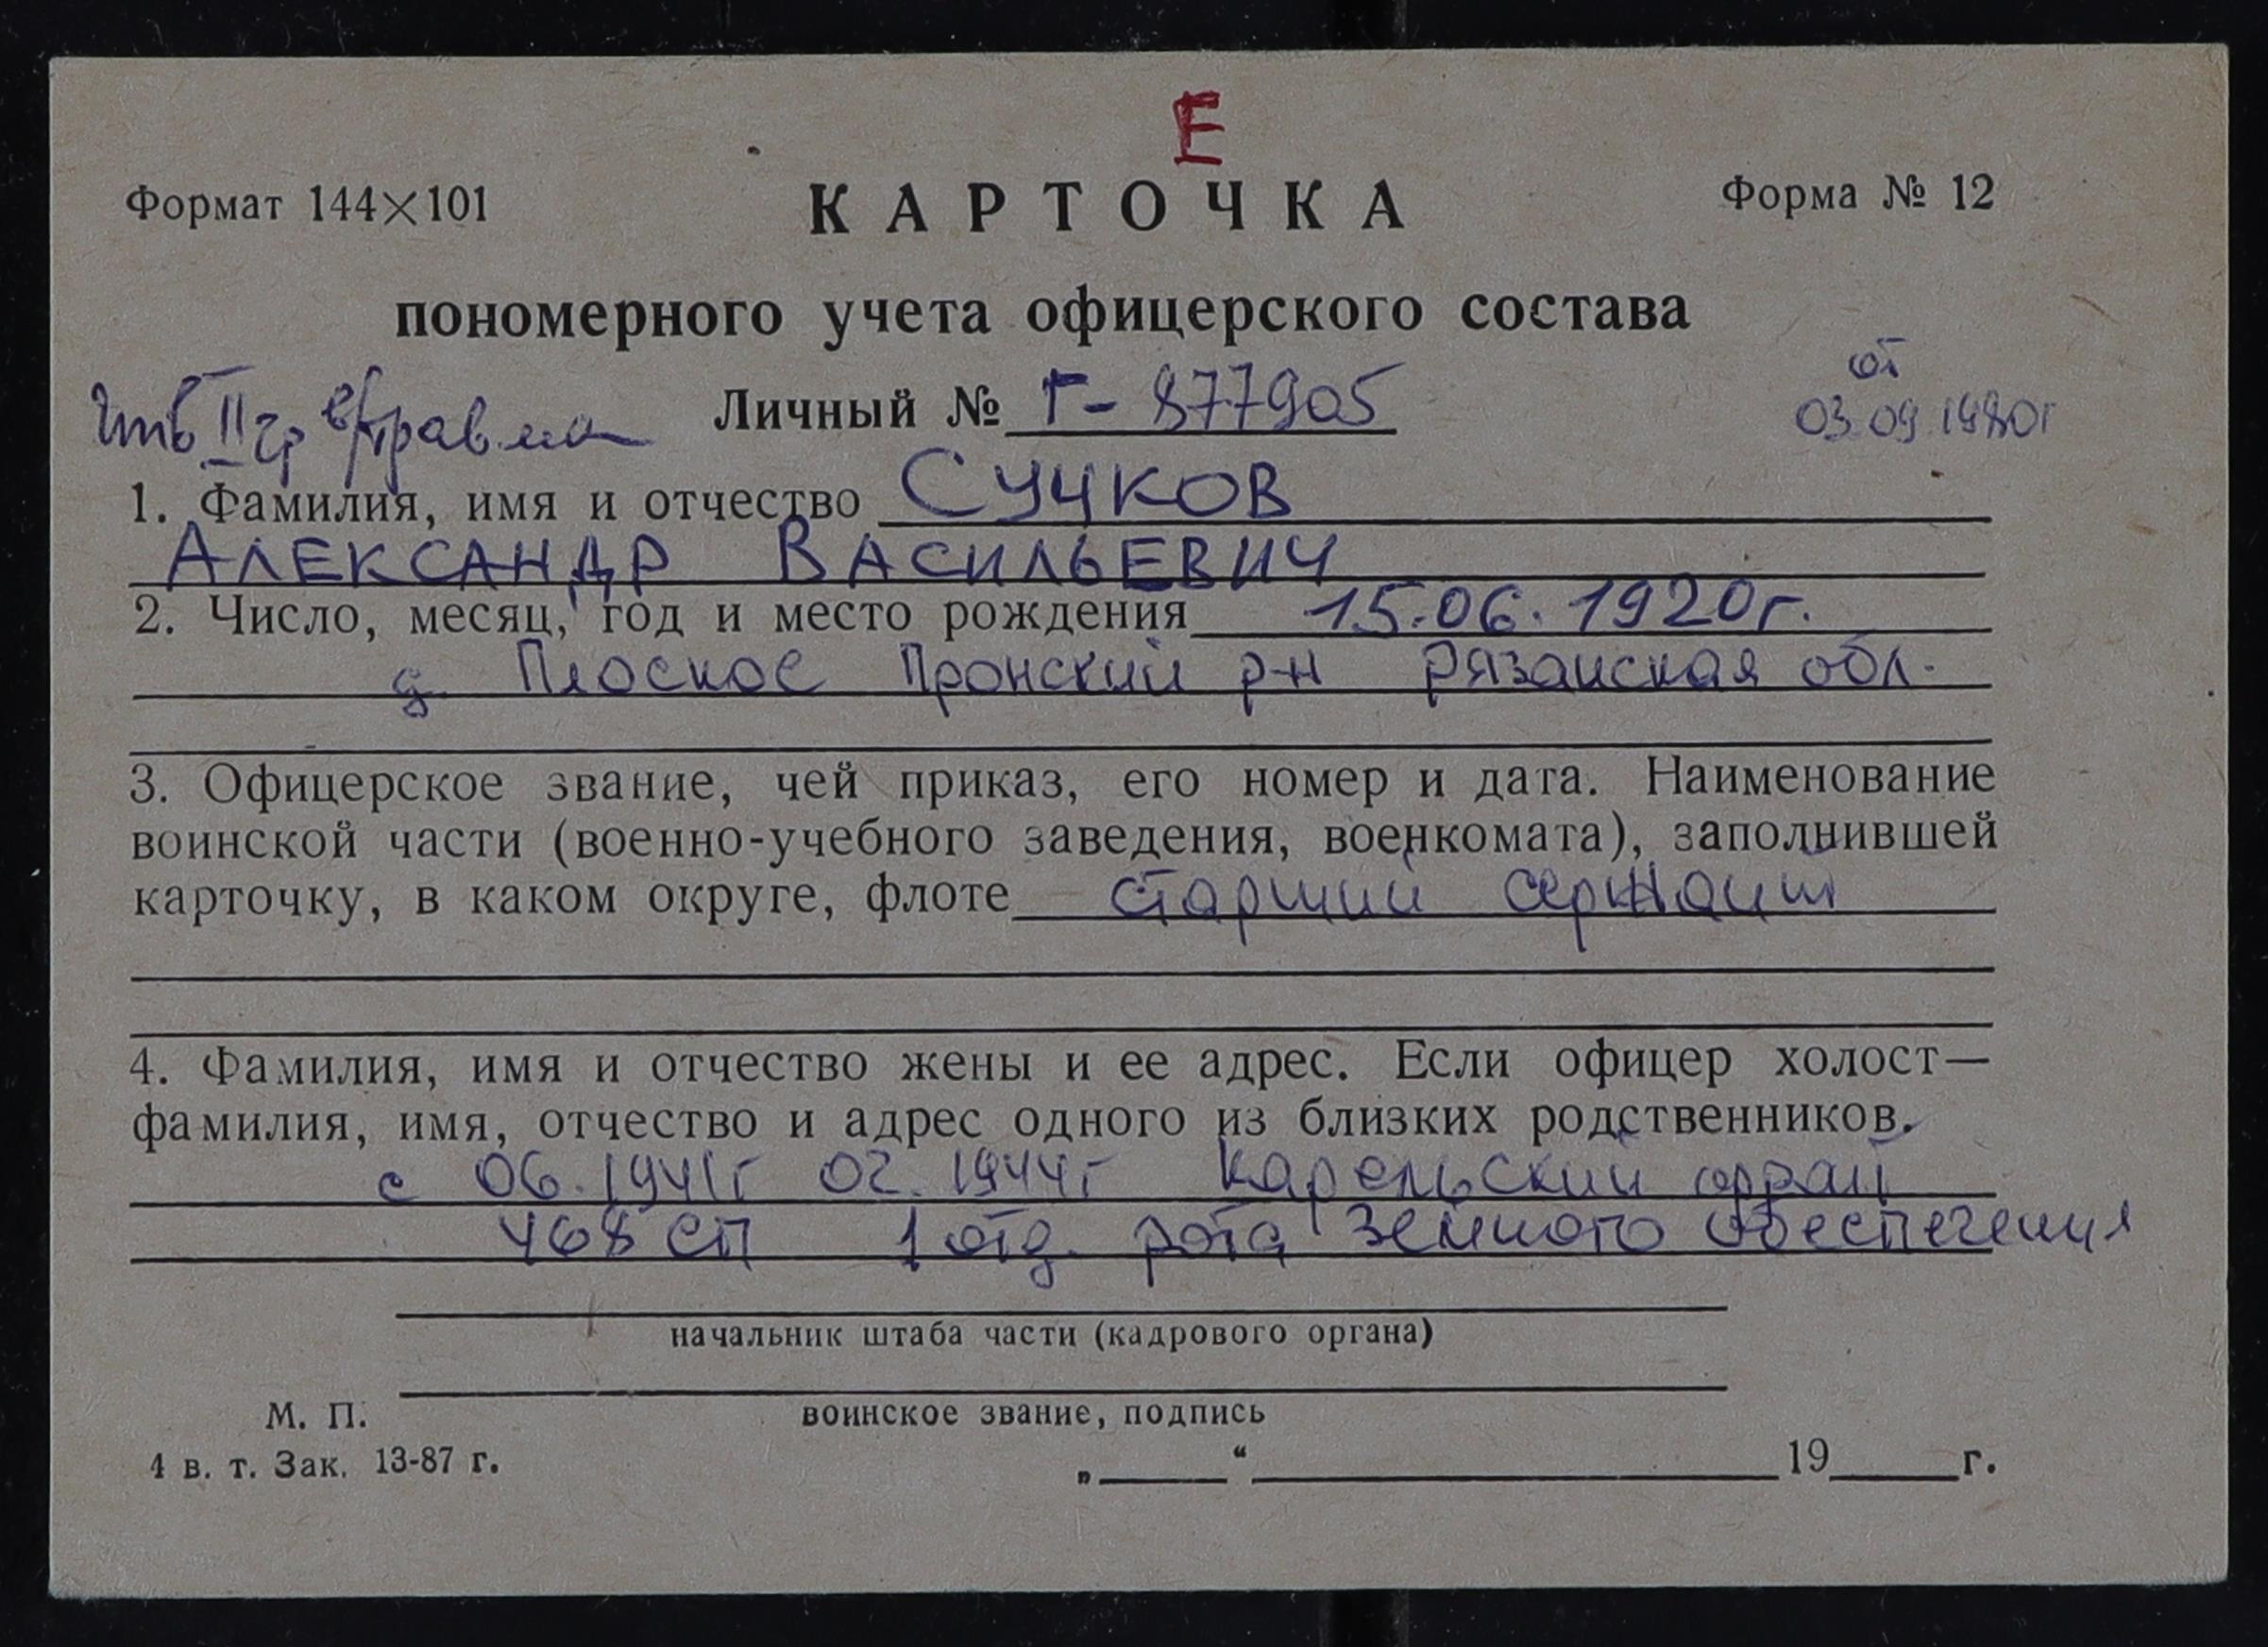 Е
Формат 144×101
КАРТОЧКА
Форма № 12
пономерного учета офицерского состава
от
03.09.1980г
инв II гр в/травма
Личный № Г-877905
1. Фамилия, имя и отчество СУЧКОВ
АЛЕКСАНДР ВАСИЛЬЕВИЧ
2. Число, месяц, год и место рождения 15.06.1920г.
д. Плоское Пронский р-н Рязанская обл.
3. Офицерское звание, чей приказ, его номер и дата. Наименование
воинской части (военно-учебного заведения, военкомата), заполнившей
карточку, в каком округе, флоте старший сержант
4. Фамилия, имя и отчество жены и ее адрес. Если офицер холост—
фамилия, имя, отчество и адрес одного из близких родственников.
с 06.1941г 02.1944г Карельский
468 СП 1 отд. рота земного обеспечения
начальник штаба части (кадрового органа)
М. П.
воинское звание, подпись
4 в. т. Зак. 13-87 г.
„ “ 19 г.